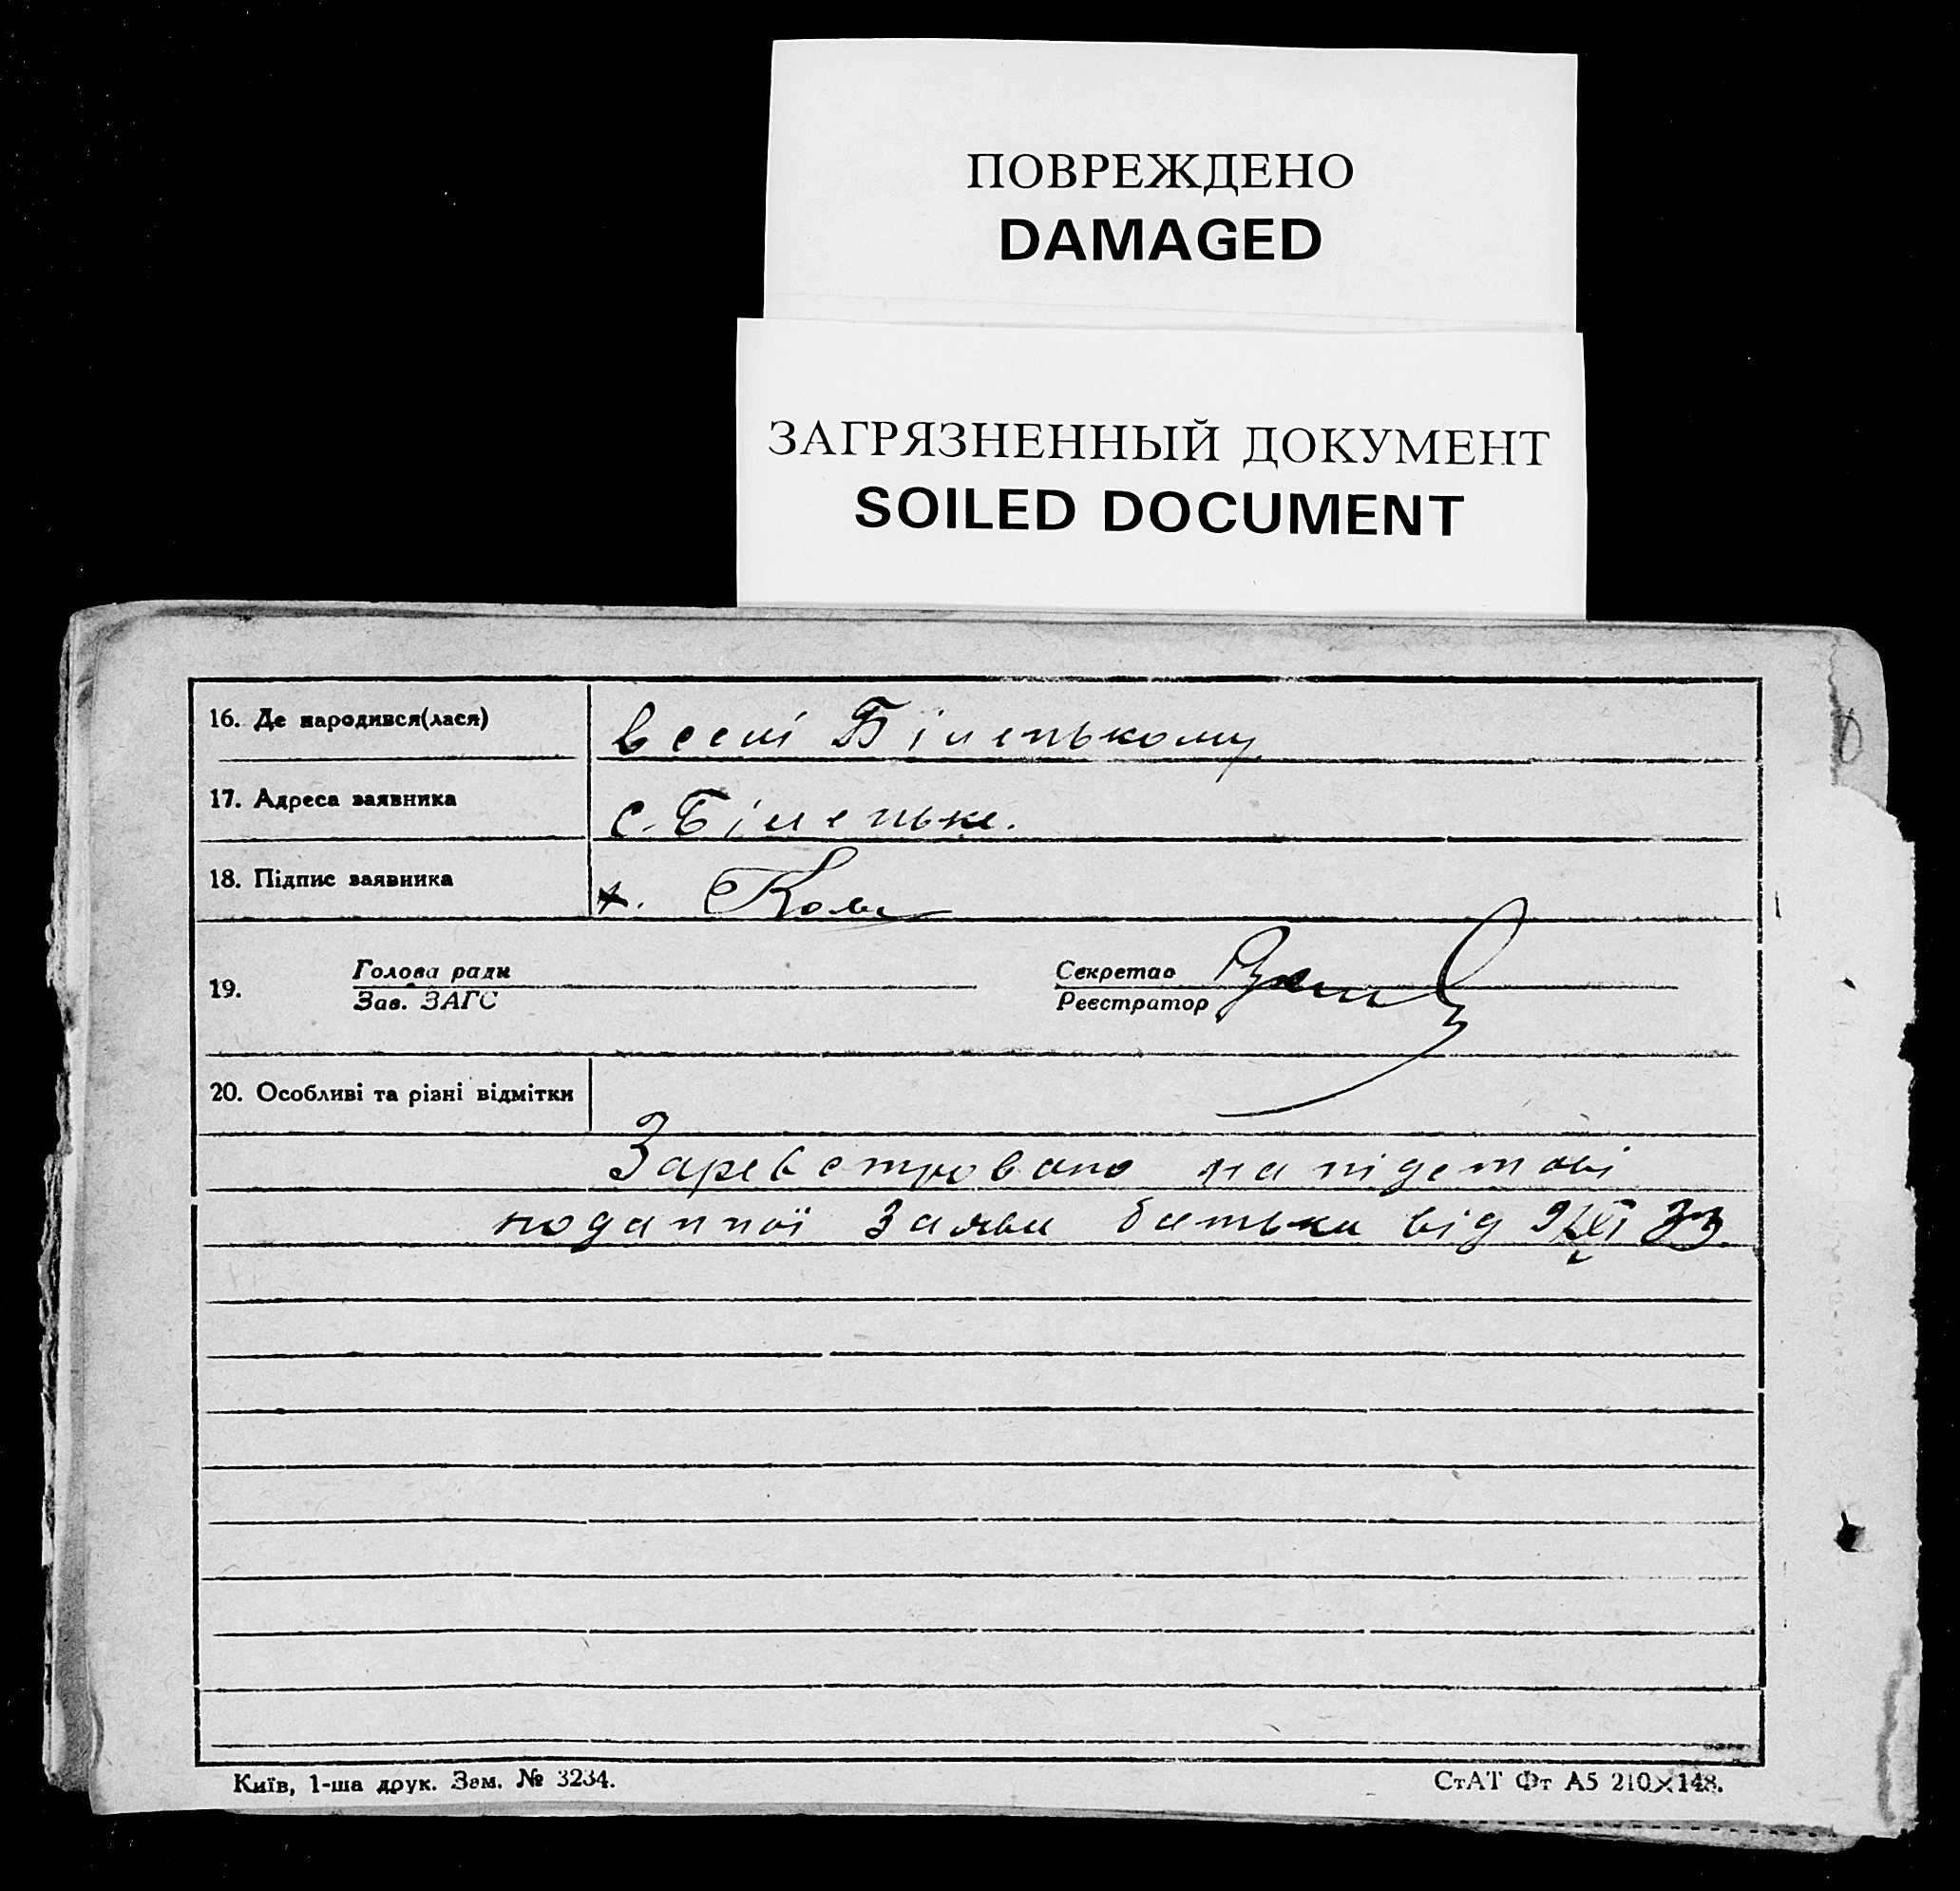 ПОВРЕЖДЕНО
DAMAGED
ЗАГРЯЗНЕННЫЙ ДОКУМЕНТ
SOILED DOCUMENT
16. Де народився(лася) в селі Біленькому
17. Адреса заявника с. Біленьке.
18. Підпис заявника
19. Голова ради Секретар
Зав. ЗАГС Реєстратор
20. Особливі та різні відмітки
Зареєстровано на підставі
поданної Заяви батька від 9/XI 33.
Київ, 1-ша друк. Зам. № 3234.
СтАТ Фт А5 210×148.